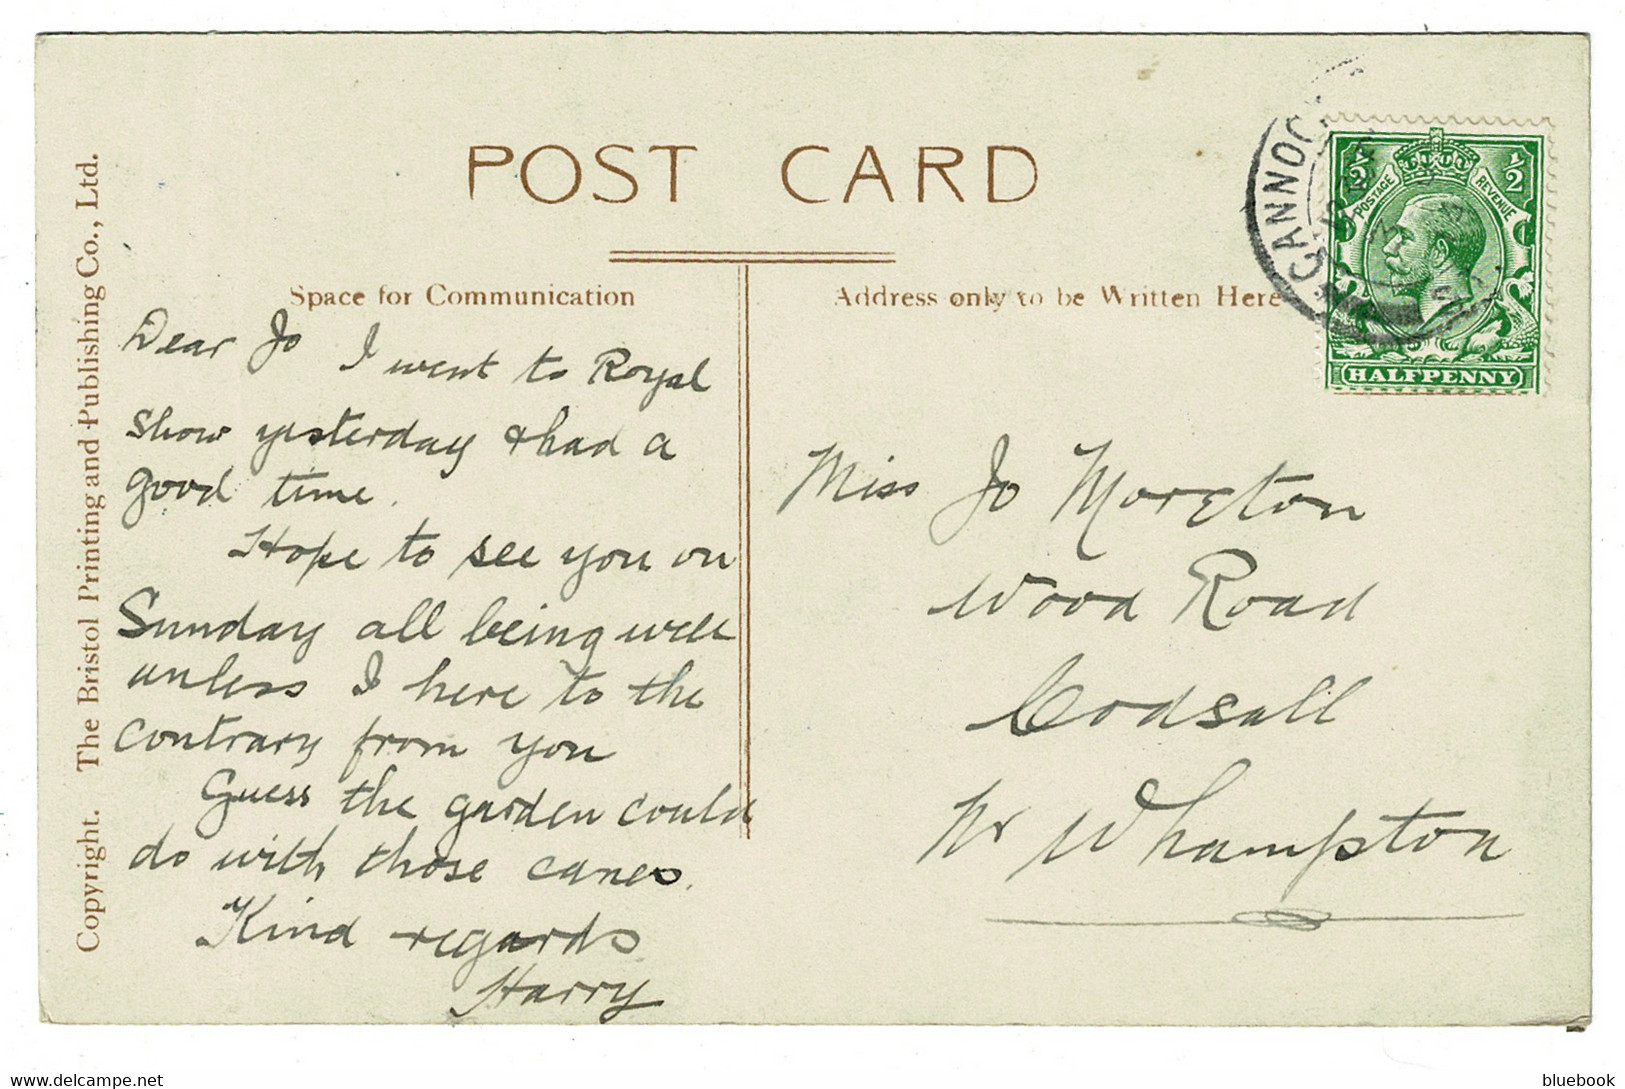 POST CARD
Space for Communication
Address only to be Written Here
Copyright. The Bristol Printing and Publishing Co., Ltd.
CANNOCK
½ ½
POSTAGE REVENUE
HALFPENNY
Dear Jo I went to Royal
Show yesterday & had a
good time.
Hope to see you on
Sunday all being well
unless I here to the
contrary from you
Guess the garden could
do with those canes.
Kind regards
Harry
Miss Jo Moreton
Wood Road
Codsall
Nr Whampton
www.delcampe.net
bluebook